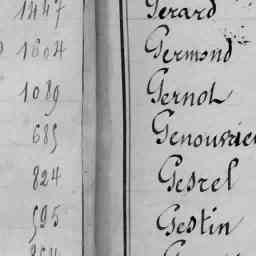 1447 Gerard
1604 Germond
1089 Gernot
685
824 Gesrel
595 Gestin